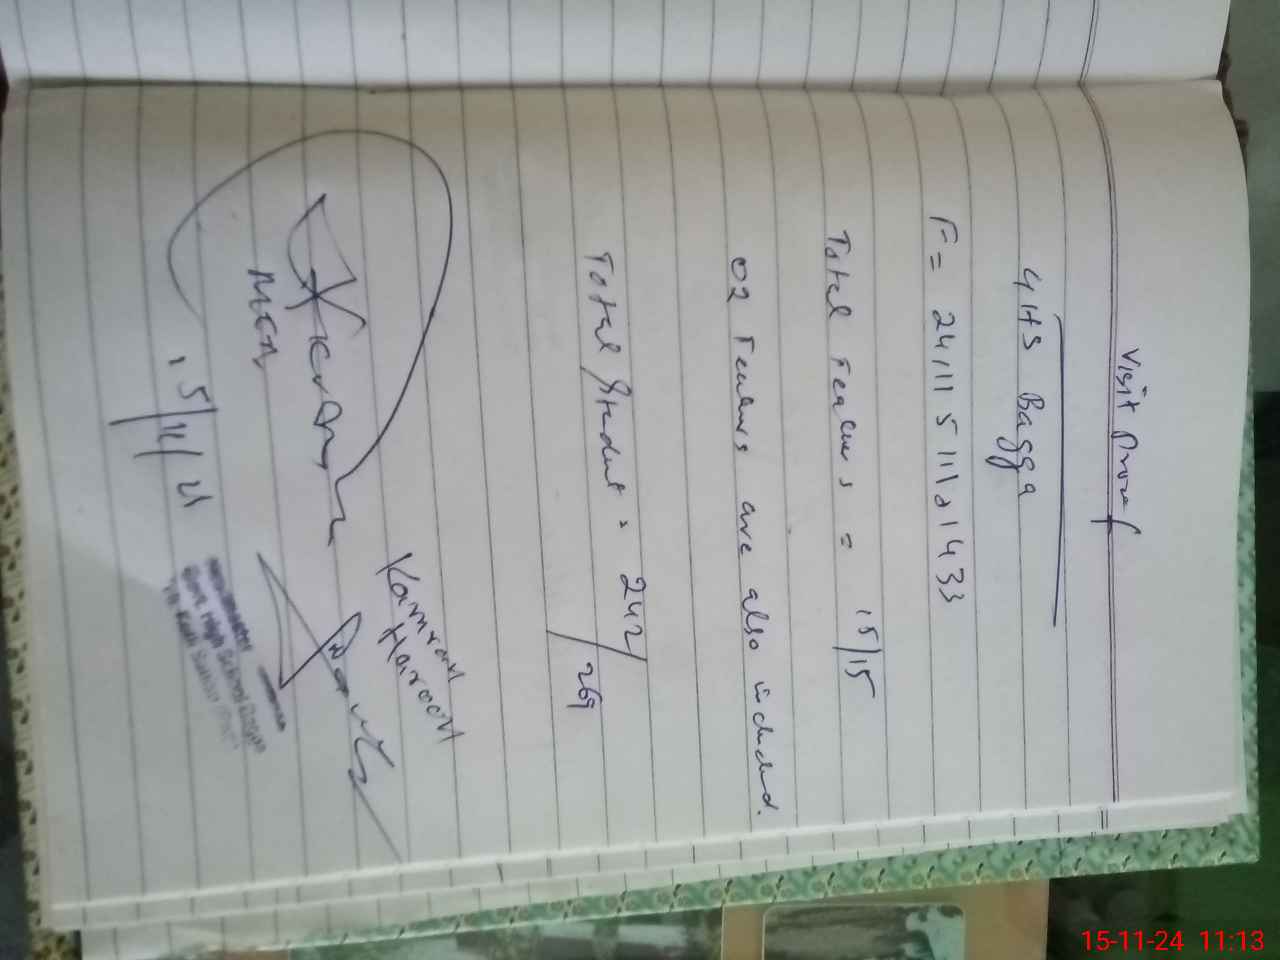 Visit Proof
GHS Bagga
F = 24111511121433
Total Teachers = 15/15
02 Teachers are also included.
Total Student = 242/269
Kamran
Haroon
MEA
15/11/24
Headmaster
Govt. High School Bagga
15-11-24 11:13